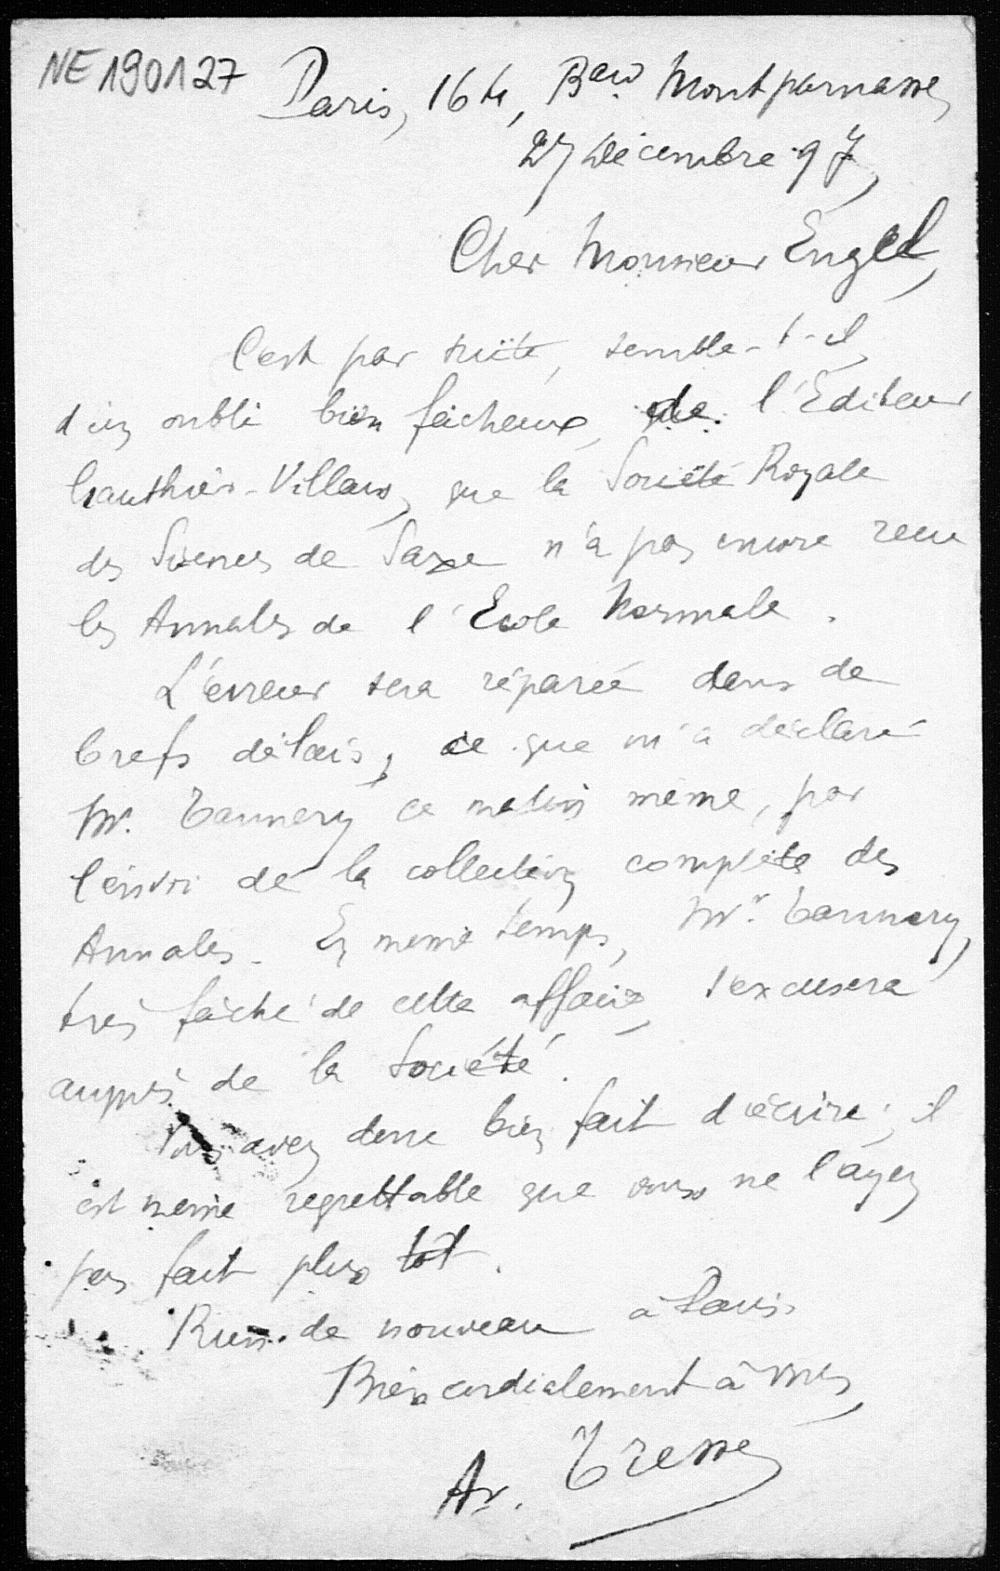 NE190127
Paris, 164, Bard Montparnasse,
27 Décembre 97,
Cher Monsieur Engel,
C'est par suite, semble-t-il,
d'un oubli bien fâcheux, de l'Editeur
Gauthier-Villars, que la Société Royale
des Sciences de Saxe n'a pas encore reçu
les Annales de l'Ecole Normale.
L'erreur sera réparée dans de
brefs délais, ce que m'a déclaré
Mr. Tannery ce matin même, par
l'envoi de la collection complète des
Annales. En même temps, Mr. Tannery,
très fâché de cette affaire, s'excusera
auprès de la Société.
Vous avez donc bien fait d'écrire; il
est même regrettable que vous ne l'ayez
pas fait plus tôt.
Rien de nouveau à Paris.
Bien cordialement à vous,
Ar. Tresse